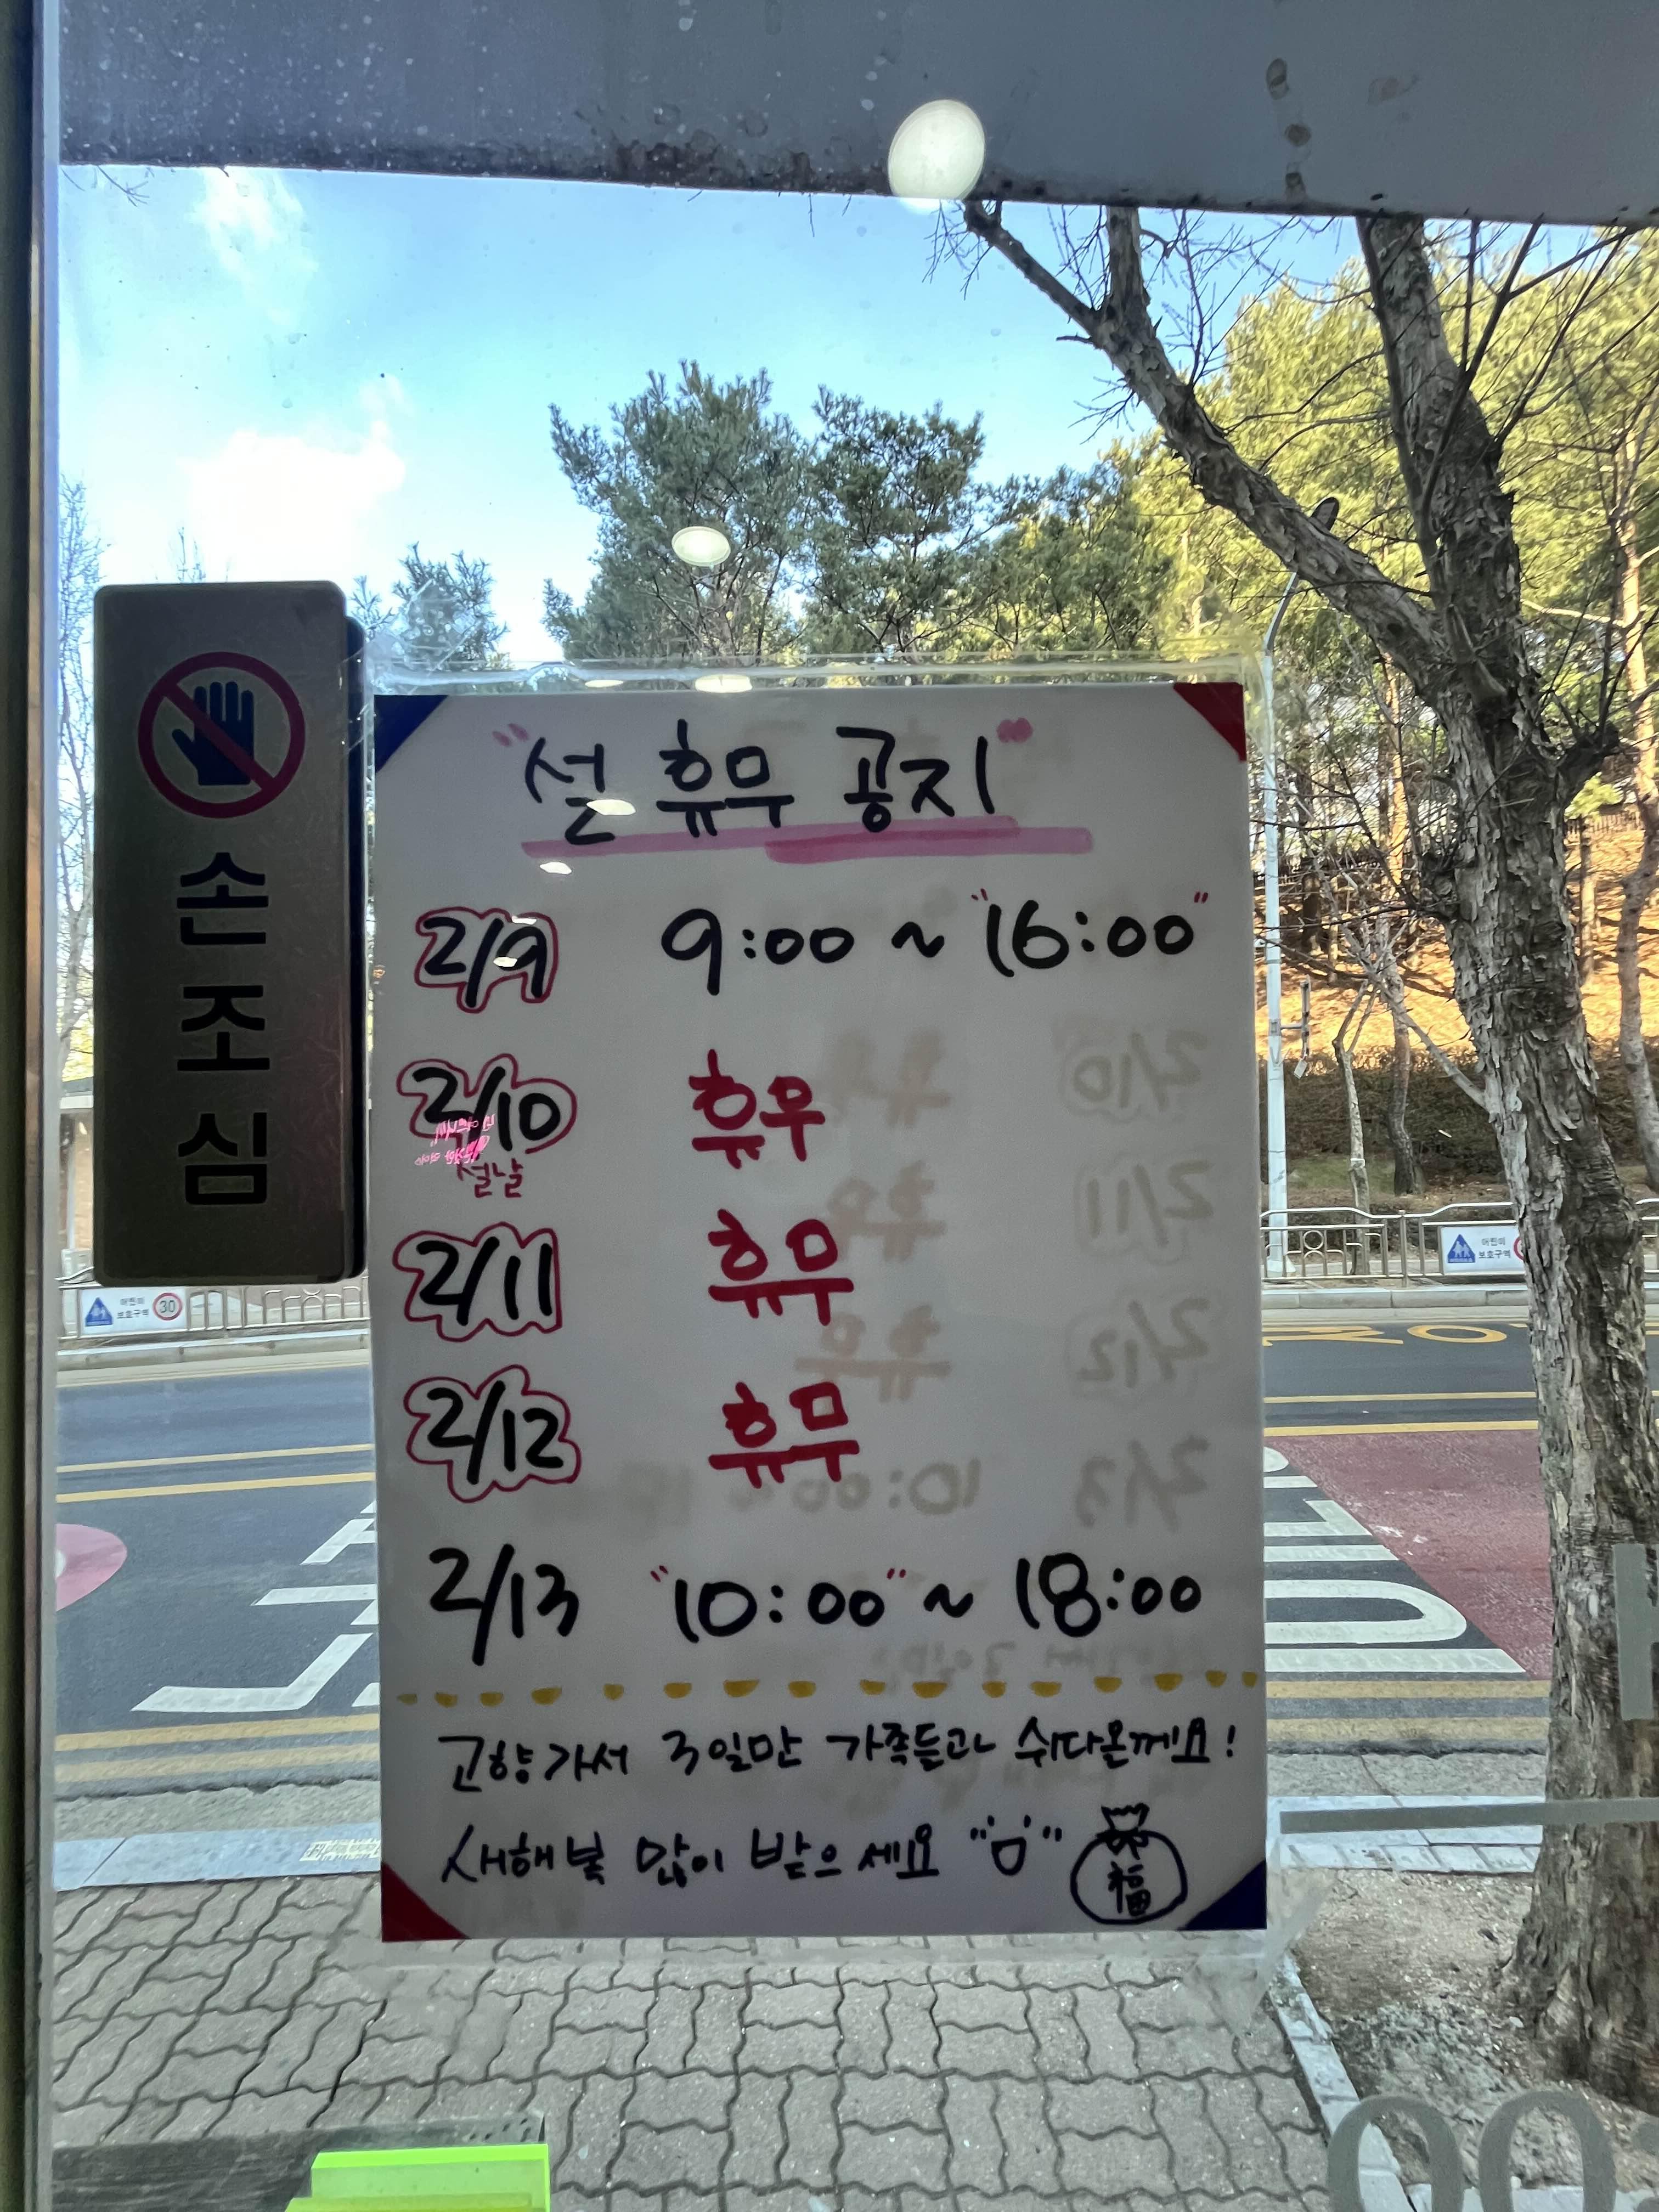 손조심
"설 휴무 공지"
2/9 9:00 ~ "16:00"
2/10 휴무
설날
2/11 휴무
2/12 휴무
2/13 "10:00" ~ 18:00
고향가서 3일만 가족들과 쉬다온께요!
새해복 많이 받으세요
福
어린이
보호구역
30
어린이
보호구역